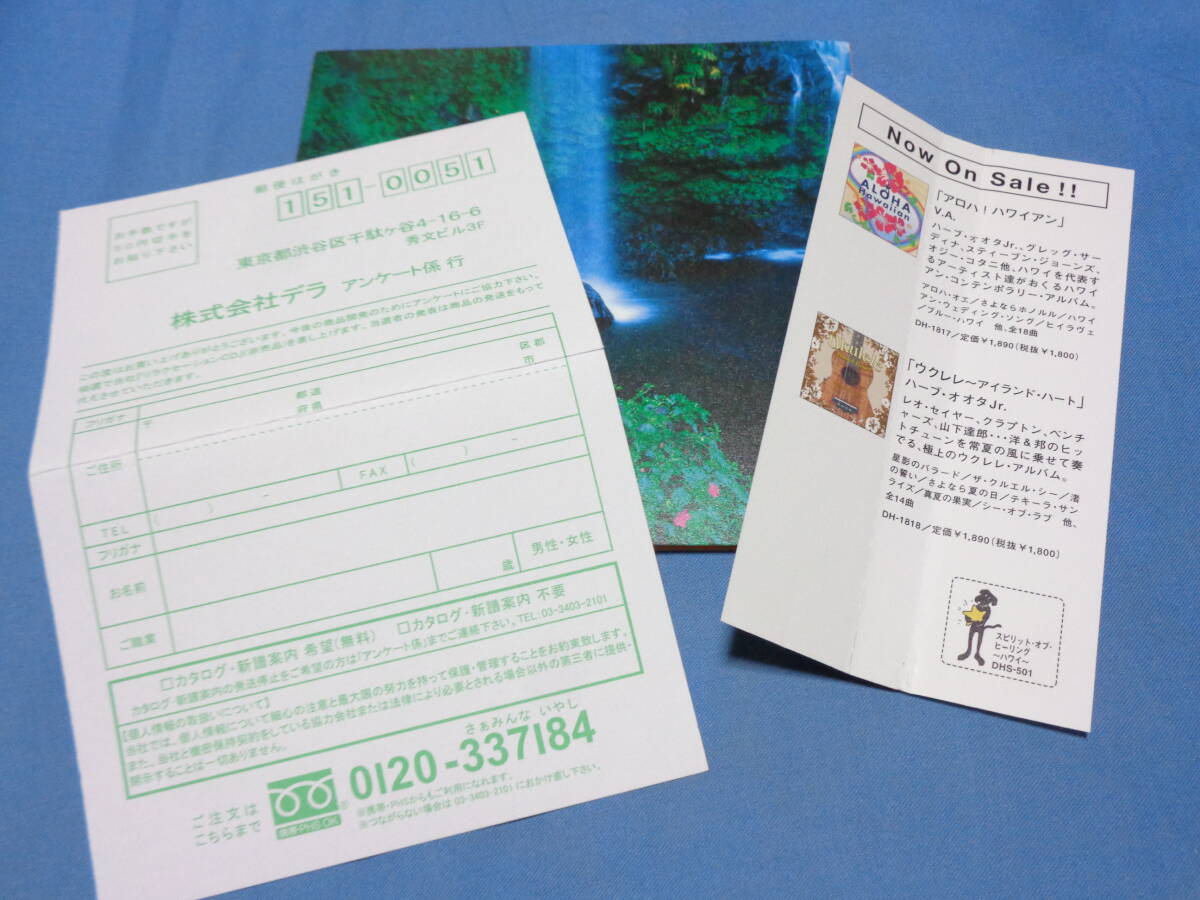 郵便はがき
151-0051
お手数ですが
50円切手を
お貼り下さい
東京都渋谷区千駄ヶ谷4-16-6
秀文ビル3F
株式会社デラ アンケート係 行
この度はお買い上げありがとうございます。今後の商品開発のためにアンケートにご協力下さい。
抽選で当社「リラクセーションCD」(非売品)を差し上げます。当選者の発表は商品の発送をもって
代えさせていただきます。
フリガナ
ご住所
〒
都道
府県
区郡
市
TEL
( ) -
FAX
( ) -
フリガナ
お名前
歳
男性・女性
ご職業
□カタログ・新譜案内 希望(無料) □カタログ・新譜案内 不要
カタログ・新譜案内の発送停止をご希望の方は「アンケート係」までご連絡下さい。TEL:03-3403-2101
【個人情報の取扱いについて】
当社では、個人情報について細心の注意と最大限の努力を持って保護・管理することをお約束致します。
また、当社と機密保持契約をしている協力会社または法律により必要とされる場合以外の第三者に提供・
開示することは一切ありません。
ご注文は
こちらまで
携帯・PHS OK
さぁみんな いやし
0120-337184
※携帯・PHSからもご利用になれます。
※つながらない場合は 03-3403-2101 におかけ直し下さい。
Now On Sale!!
ALOHA
Hawaiian
「アロハ!ハワイアン」
V.A.
ハーブ・オオタJr.、グレッグ・サー
ディナ、スティーブン・ジョーンズ、
オジー・コタニ他、ハワイを代表す
るアーティスト達がおくるハワイ
アン・コンテンポラリー・アルバム。
アロハ・オエ/さよならホノルル/ハワイ
アン・ウェディング・ソング/ヒイラヴェ
/ブルー・ハワイ 他、全18曲
DH-1817/定価¥1,890(税抜¥1,800)
ukulele
「ウクレレ〜アイランド・ハート」
ハーブ・オオタJr.
レオ・セイヤー、クラプトン、ベンチ
ャーズ、山下達郎・・・洋&邦のヒッ
トチューンを常夏の風に乗せて奏
でる、極上のウクレレ・アルバム。
星影のバラード/ザ・クルエル・シー/渚
の誓い/さよなら夏の日/テキーラ・サン
ライズ/真夏の果実/シー・オブ・ラブ 他、
全14曲
DH-1818/定価¥1,890(税抜¥1,800)
スピリット・オブ・
ヒーリング
〜ハワイ〜
DHS-501